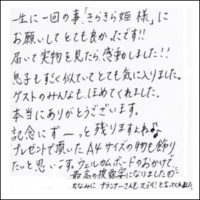 一生に一回の事!「きらきら姫様」に
お願いしてとても良かったです!!
届いて実物を見たら、感動しました!!
息子もすごく似ていてとても気に入りました。
ゲストのみんなも、ほめてくれました。
本当にありがとうございます。
記念にず〜っと残りますよね♪
プレゼントで頂いたA4サイズの物も飾り
たいと思います。ウェルカムボードのおかげで、
最高の披露宴になりました
ちなみに プランナーさんも、スゴイ!と